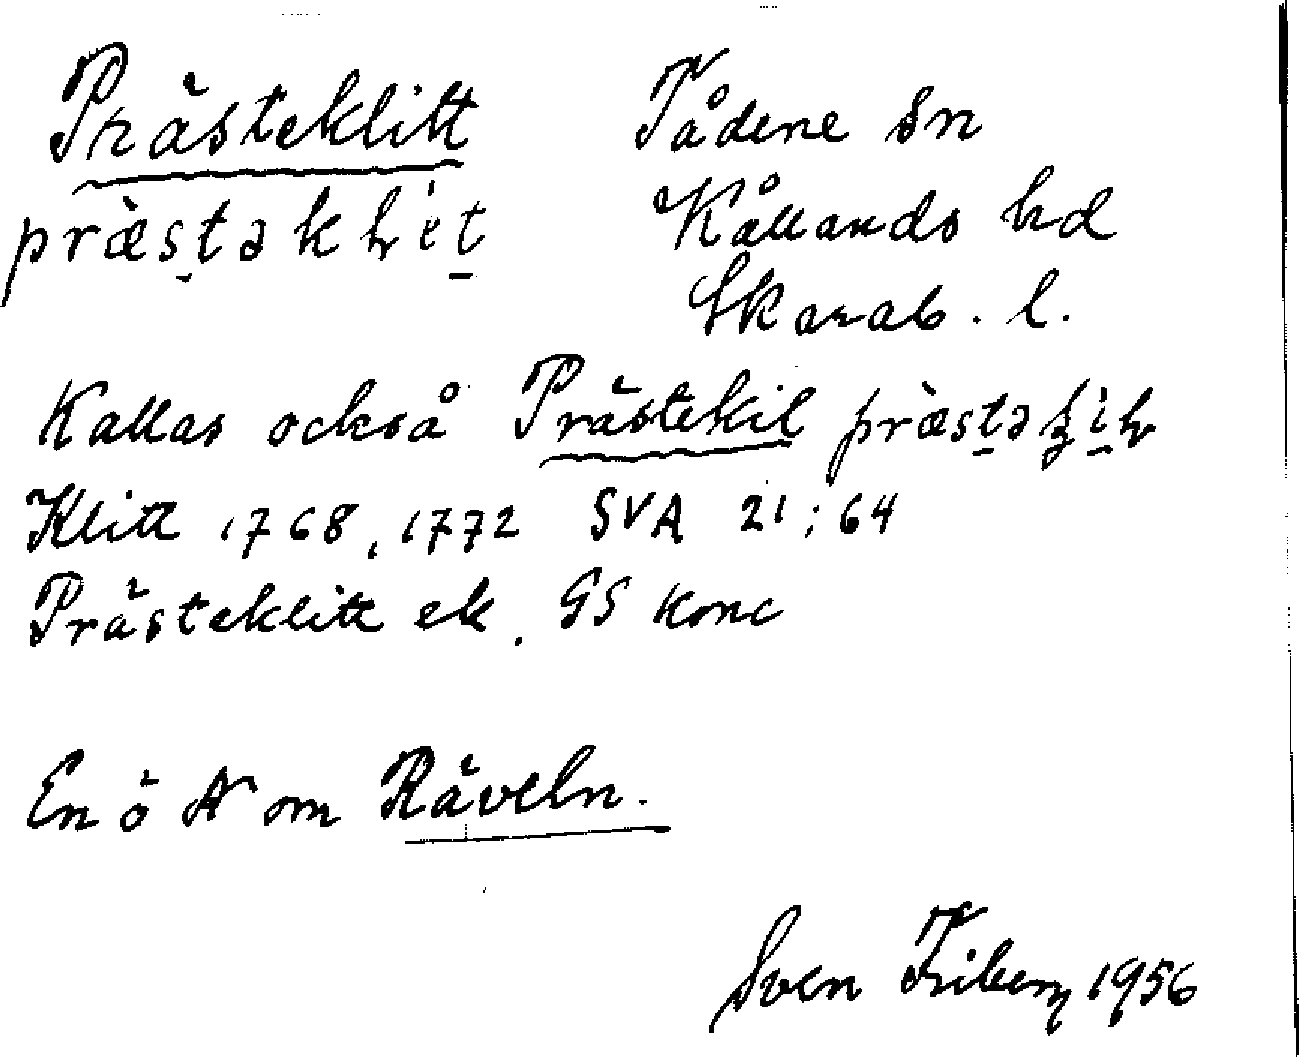 Prästeklitt Tådene Sn
præ̀stəklit Kållands hd
Skarab. l.
Kallas också Prästekil
Klitt 1768, 1772 SVA 21:64
Prästeklitt ek. GS konc
En ö N om Räveln.
Sven Friberg 1956